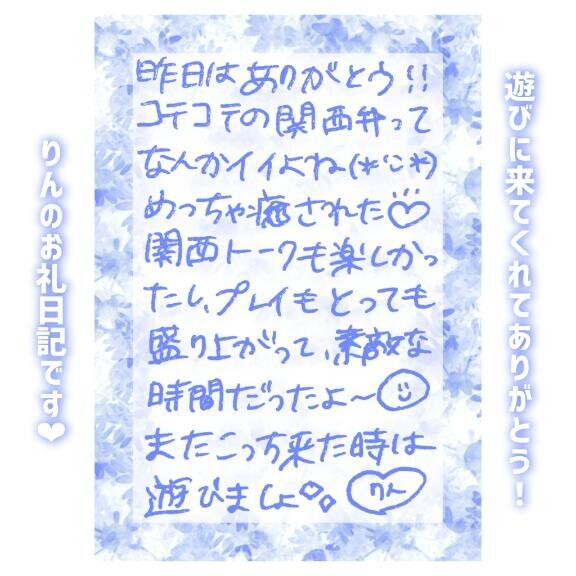 遊びに来てくれてありがとう!
昨日はありがとウ!!
コテコテの関西弁って
なんかイイよね(*´▽`*)
めっちゃ癒された♡
関西トークも楽しかっ
たし、プレイもとっても
盛り上がって、素敵な
時間だったよ〜☺
またこっち来た時は
遊びましょ
りん
りんのお礼日記です❤